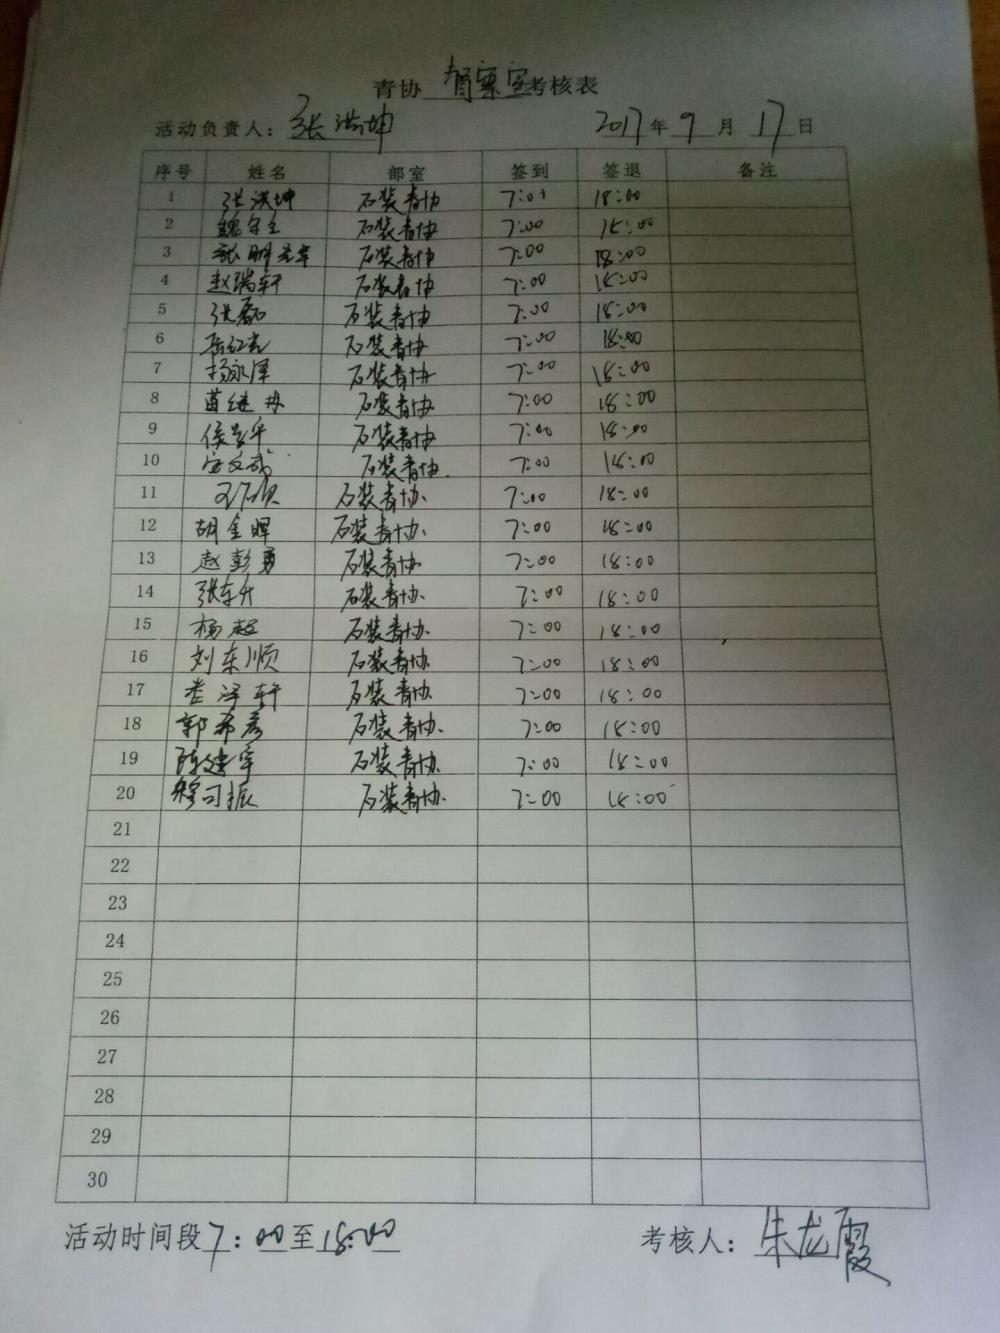 青协 督察室 考核表
活动负责人: 张洪坤 2017年9月17日
序号 姓名 部室 签到 签退 备注
1 张洪坤 石装青协 7:01 18:00
2 石装青协 7:00 18:00
3 张明 石装青协 7:00 18:00
4 赵瑞轩 石装青协 7:00 18:00
5 张磊 石装青协 7:00 18:00
6 石装青协 7:00 18:00
7 杨永泽 石装青协 7:00 18:00
8 石装青协 7:00 18:00
9 侯 石装青协 7:00 18:00
10 石装青协 7:00 18:00
11 石装青协 7:00 18:00
12 胡金晖 石装青协 7:00 18:00
13 赵彭勇 石装青协 7:00 18:00
14 张东升 石装青协 7:00 18:00
15 杨超 石装青协 7:00 18:00
16 刘东顺 石装青协 7:00 18:00
17 轩 石装青协 7:00 18:00
18 郭希彦 石装青协 7:00 18:00
19 陈建军 石装青协 7:00 18:00
20 石装青协 7:00 18:00
21
22
23
24
25
26
27
28
29
30
活动时间段 7:00 至 18:00 考核人: 朱龙霞